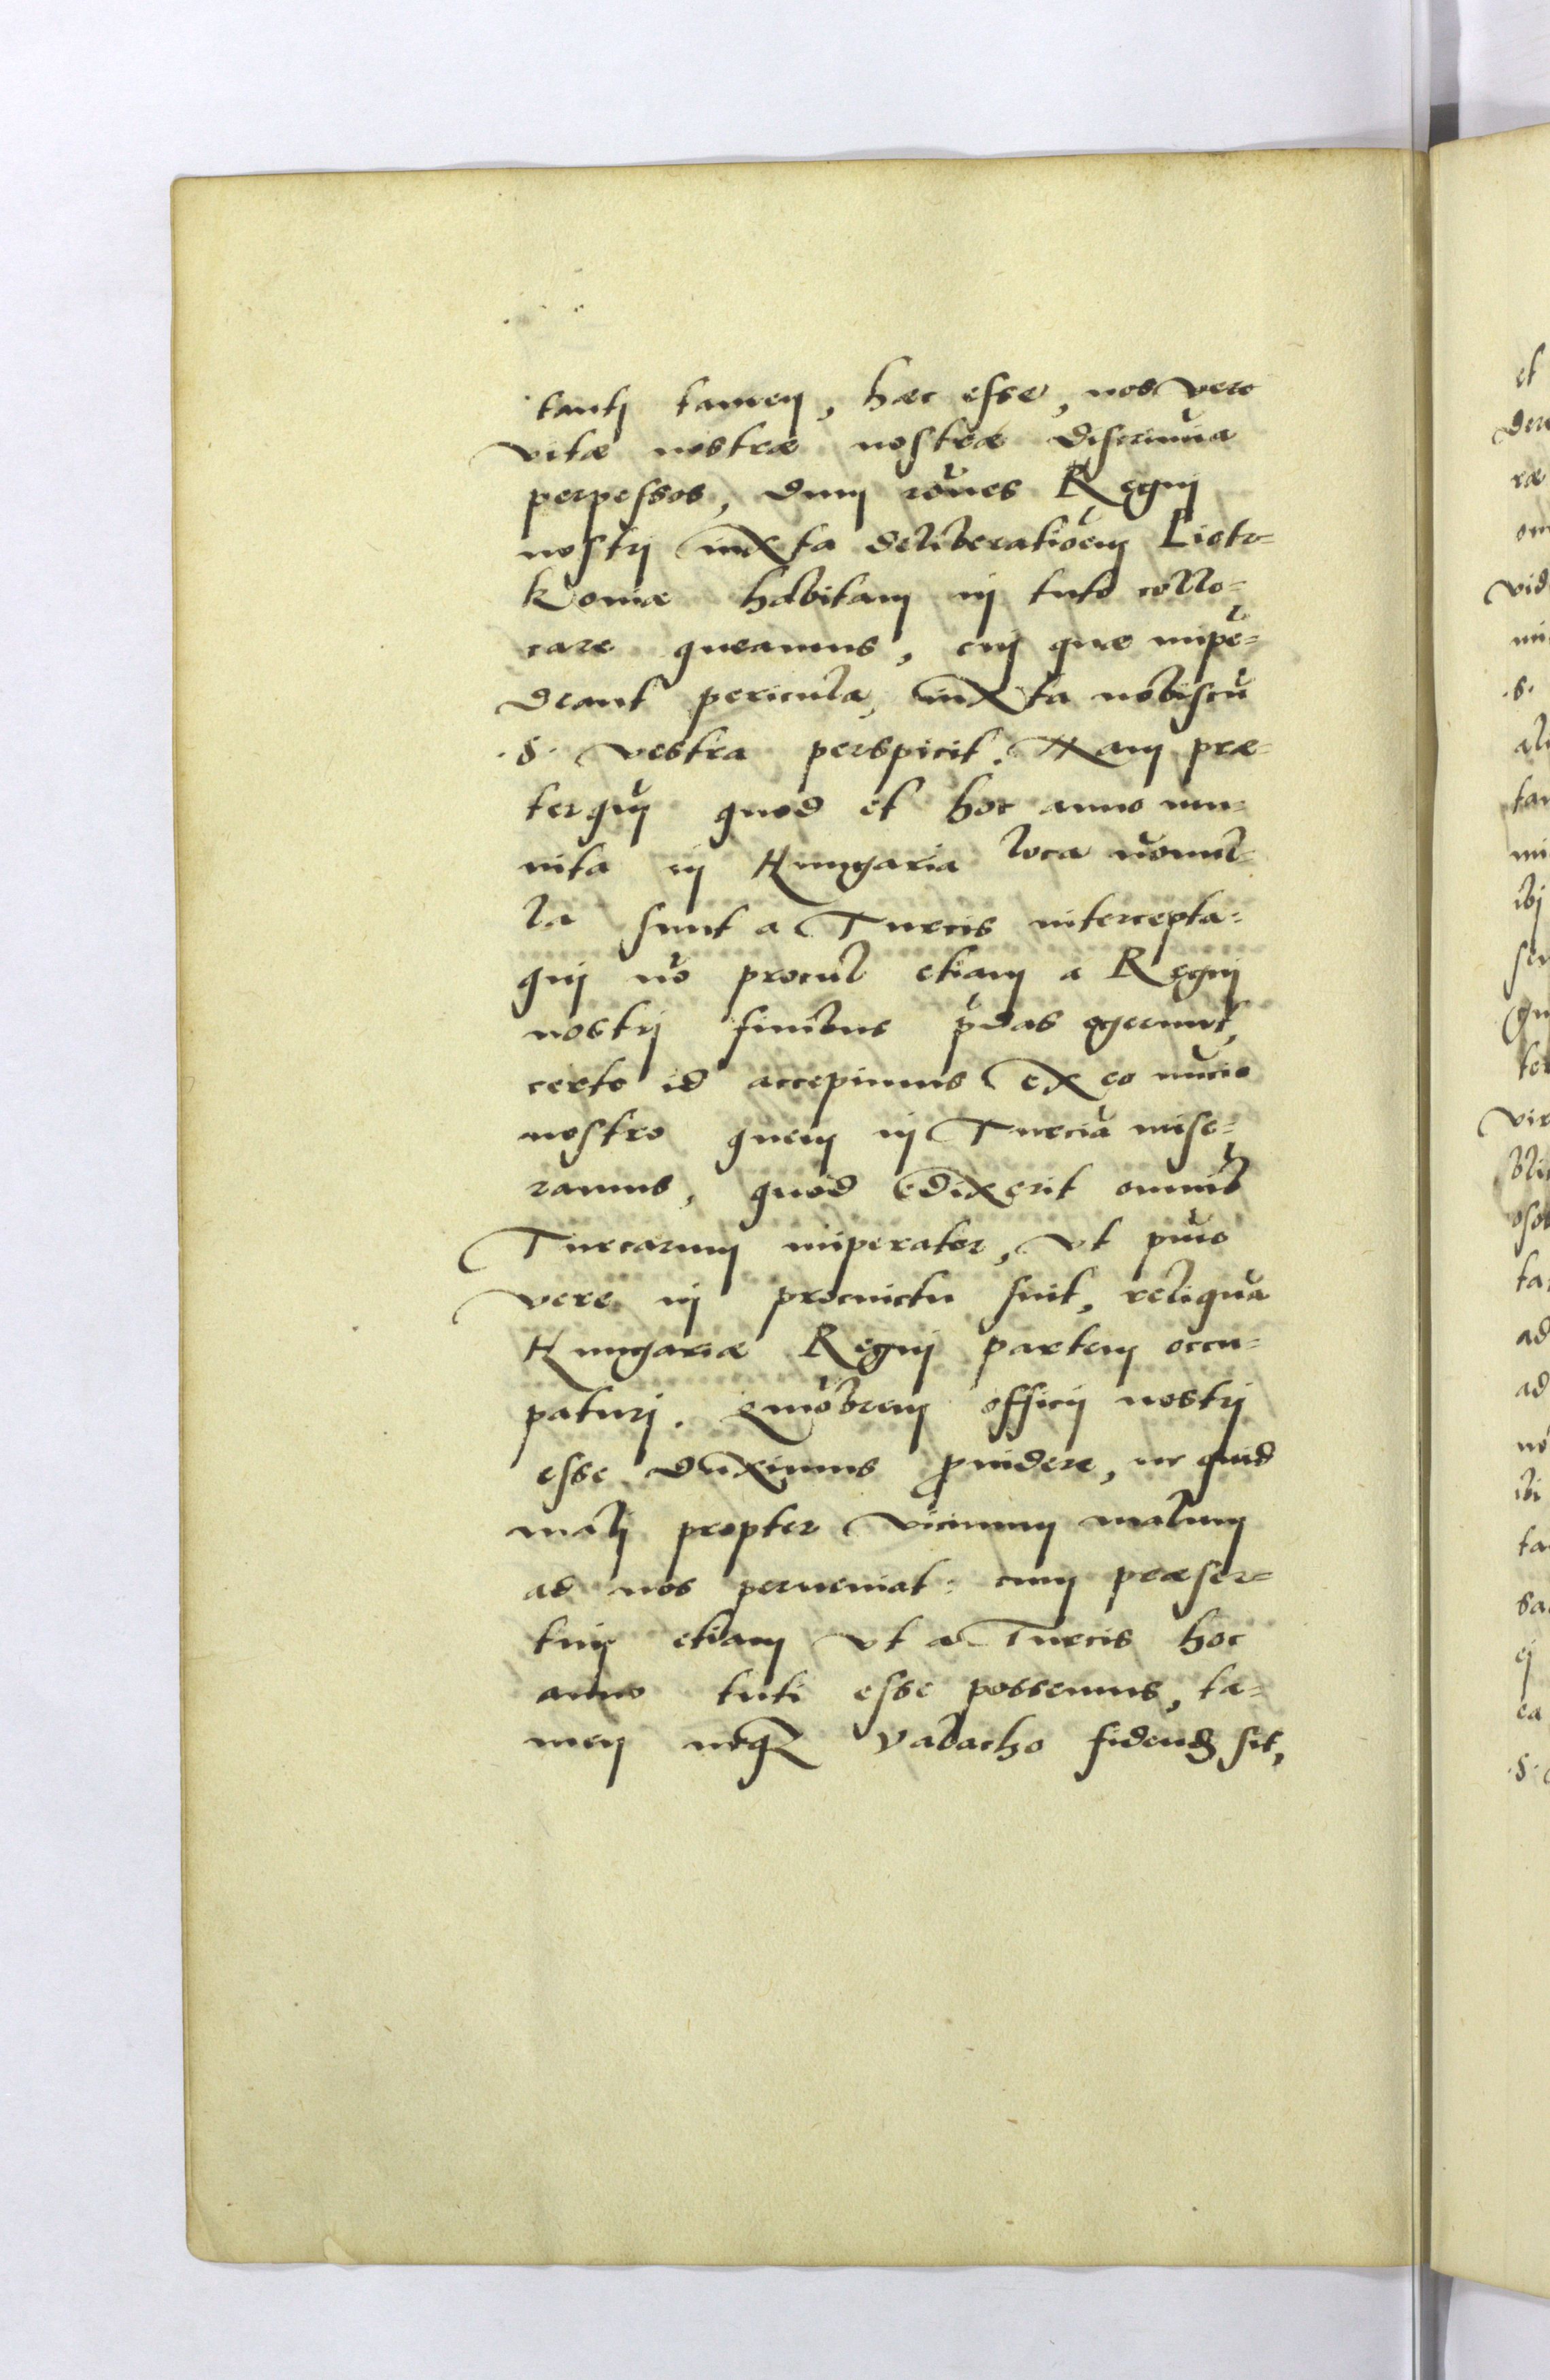 tantj tamen, haec esse, nos vero
vitae nostrae nostrae discrimina
perpessos, dum rones Regnj
nostrj iuxta deliberationem Lioto-
koniae habitam in tuto collo-
care queamus, cuj quae impē-
deant pericula, iuxta nobiscū
.S. vestra perspicit. Nam prae-
terquā quod et hoc anno mu-
nita in Hungaria loca nonnul-
la sunt a Turcis intercepta-
quj nō procul etiam a Regnj
nostrj finibus p̄das egerunt,
certo id accepimus ex eo nūcio
nostro quem in Turciā mise-
ramus, quod edixerit omnib
Turcarum imperator, vt primo
vere in procinctu sint, reliquā
Hungariae Regnj partem occu-
paturj. Quāobrem officij nostrj
esse duximus ꝓuidere, ne quid
malj propter vicinum malum
ad nos perueniat: cum praeser-
tim etiam vt a Turcis hoc
anno tuti esse possemus, ta-
men neqꝫ Valacho fidendꝫ sit,
et
vid
.s.
ibj
ad
ad
ibi
ej
ea
.S.